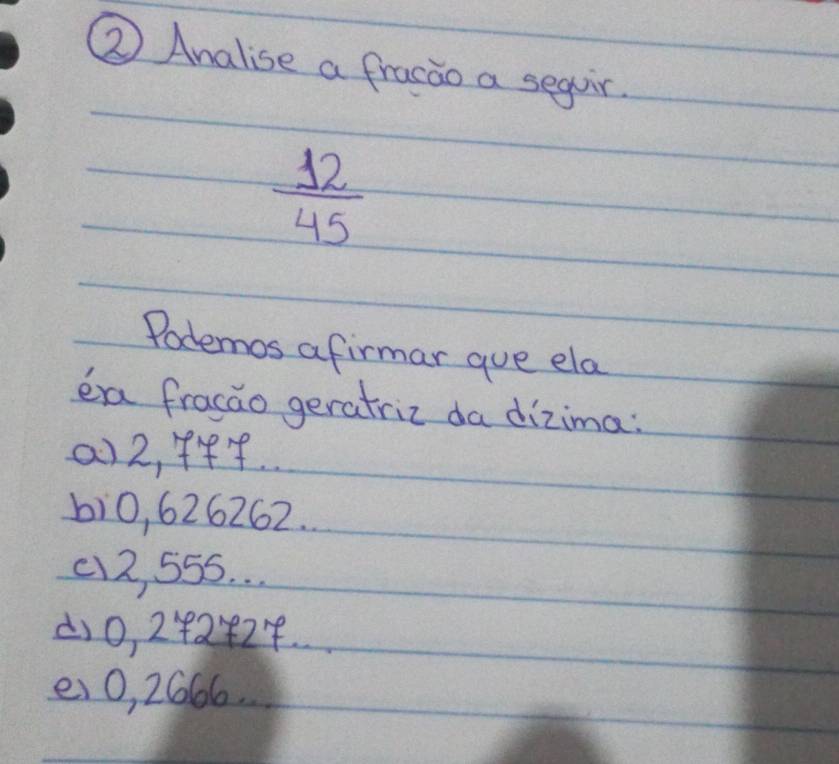 ② Analise a fração a seguir.
12
45
Podemos afirmar que ela
é a fração geratriz da dízima:
a) 2,777...
b) 0,626262...
c) 2,555...
d) 0,272727...
e) 0,2666...